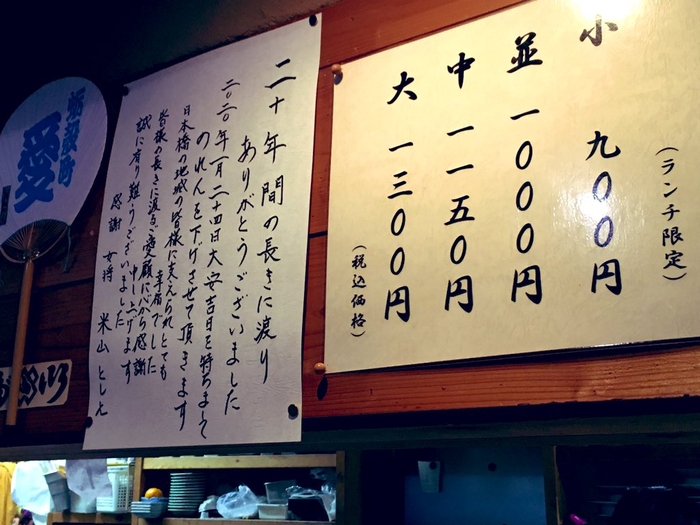 蛎殻町
愛
二十年間の長きに渡り
ありがとうございました
二〇二〇年一月二十四日大安吉日を持ちまして
のれんを下げさせて頂きます
日本橋の地域の皆様に支えられとても
幸福でした
皆様の長きに渡るご愛顧に心から感謝
申し上げます
誠に有り難うございました
感謝 女将 米山 とし
(ランチ限定)
小 九〇〇円
並 一〇〇〇円
中 一一五〇円
大 一三〇〇円
(税込価格)